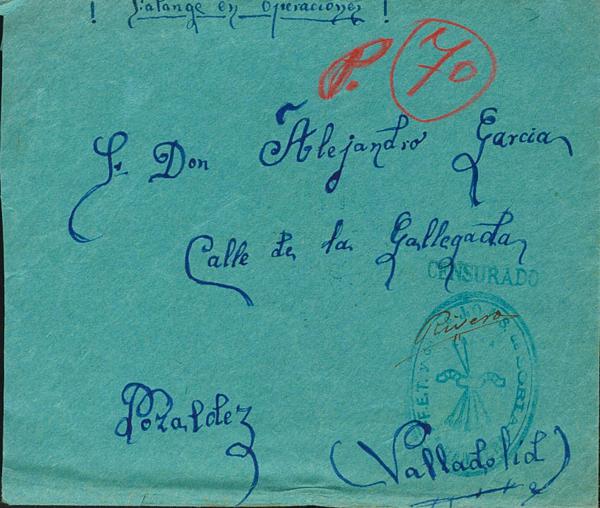 ! Falange en Operaciones !
P. 70
Sr Don Alejandro Garcia
Calle de la Gallegada
CENSURADO
Rivero
F.E.T. Y
Pozaldez
(Valladolid)